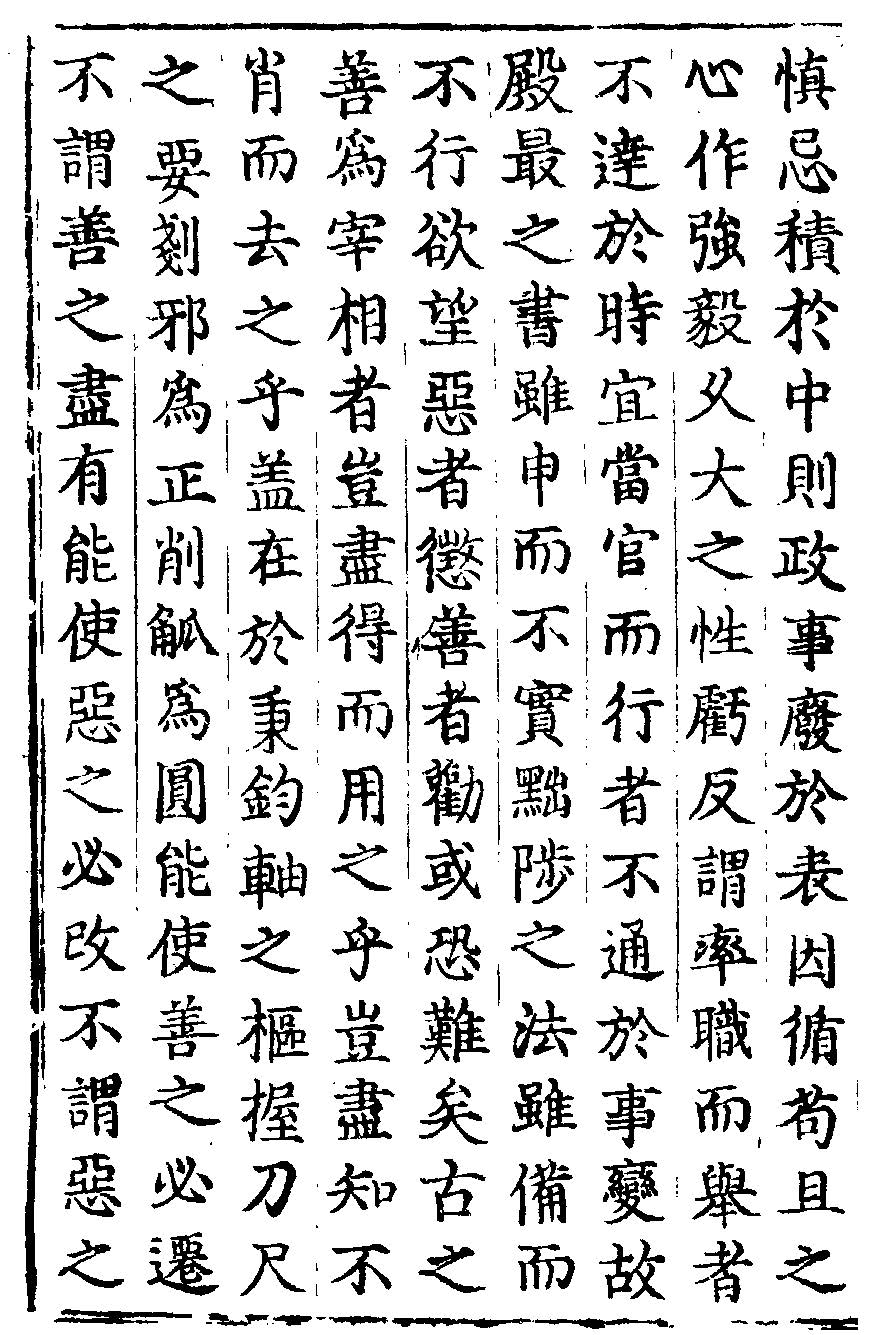 慎忌積於中則政事廢於表因循苟且之
心作強毅久大之性虧反謂率職而舉者
不達於時宜當官而行者不通於事變故
殿最之書雖申而不實黜陟之法雖備而
不行欲望惡者懲善者勸或恐難矣古之
善爲宰相者豈盡得而用之乎豈盡知不
肖而去之乎盖在於秉鈞軸之樞握刀尺
之要剗邪爲正削觚爲圓能使善之必遷
不謂善之盡有能使惡之必改不謂惡之